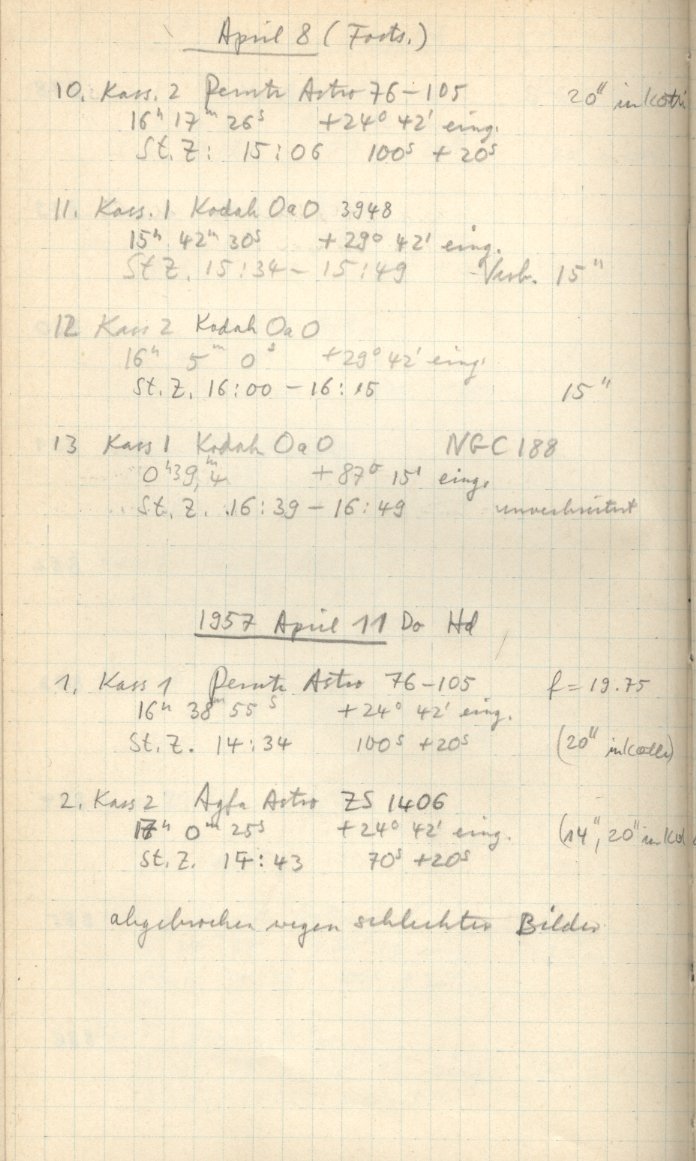 April 8 (Forts.)
10. Kass. 2 Perutz Astro 76–105 20" in
16h 17m 26s +24° 42' eing.
St. Z: 15:06 100s + 20s
11. Kass. 1 Kodak OaO 3948
15h 42m 30s +29° 42' eing.
St Z. 15:34 – 15:49 Verb. 15"
12 Kass 2 Kodak OaO
16h 5m 0s +29° 42' eing.
St. Z. 16:00 – 16:15 15"
13 Kass 1 Kodak OaO NGC 188
0h39,m4 +87° 15' eing.
St. Z. 16:39 – 16:49 unverbreitert
1957 April 11 Do Hd
1. Kass 1 Perutz Astro 76–105 f = 19.75
16h 38m 55s +24° 42' eing.
St. Z. 14:34 100s +20s (20" in
2. Kass 2 Agfa Astro ZS 1406
17h 0m 25s +24° 42' eing. (14", 20" in
St. Z. 14:43 70s +20s
abgebrochen wegen schlechter Bilder